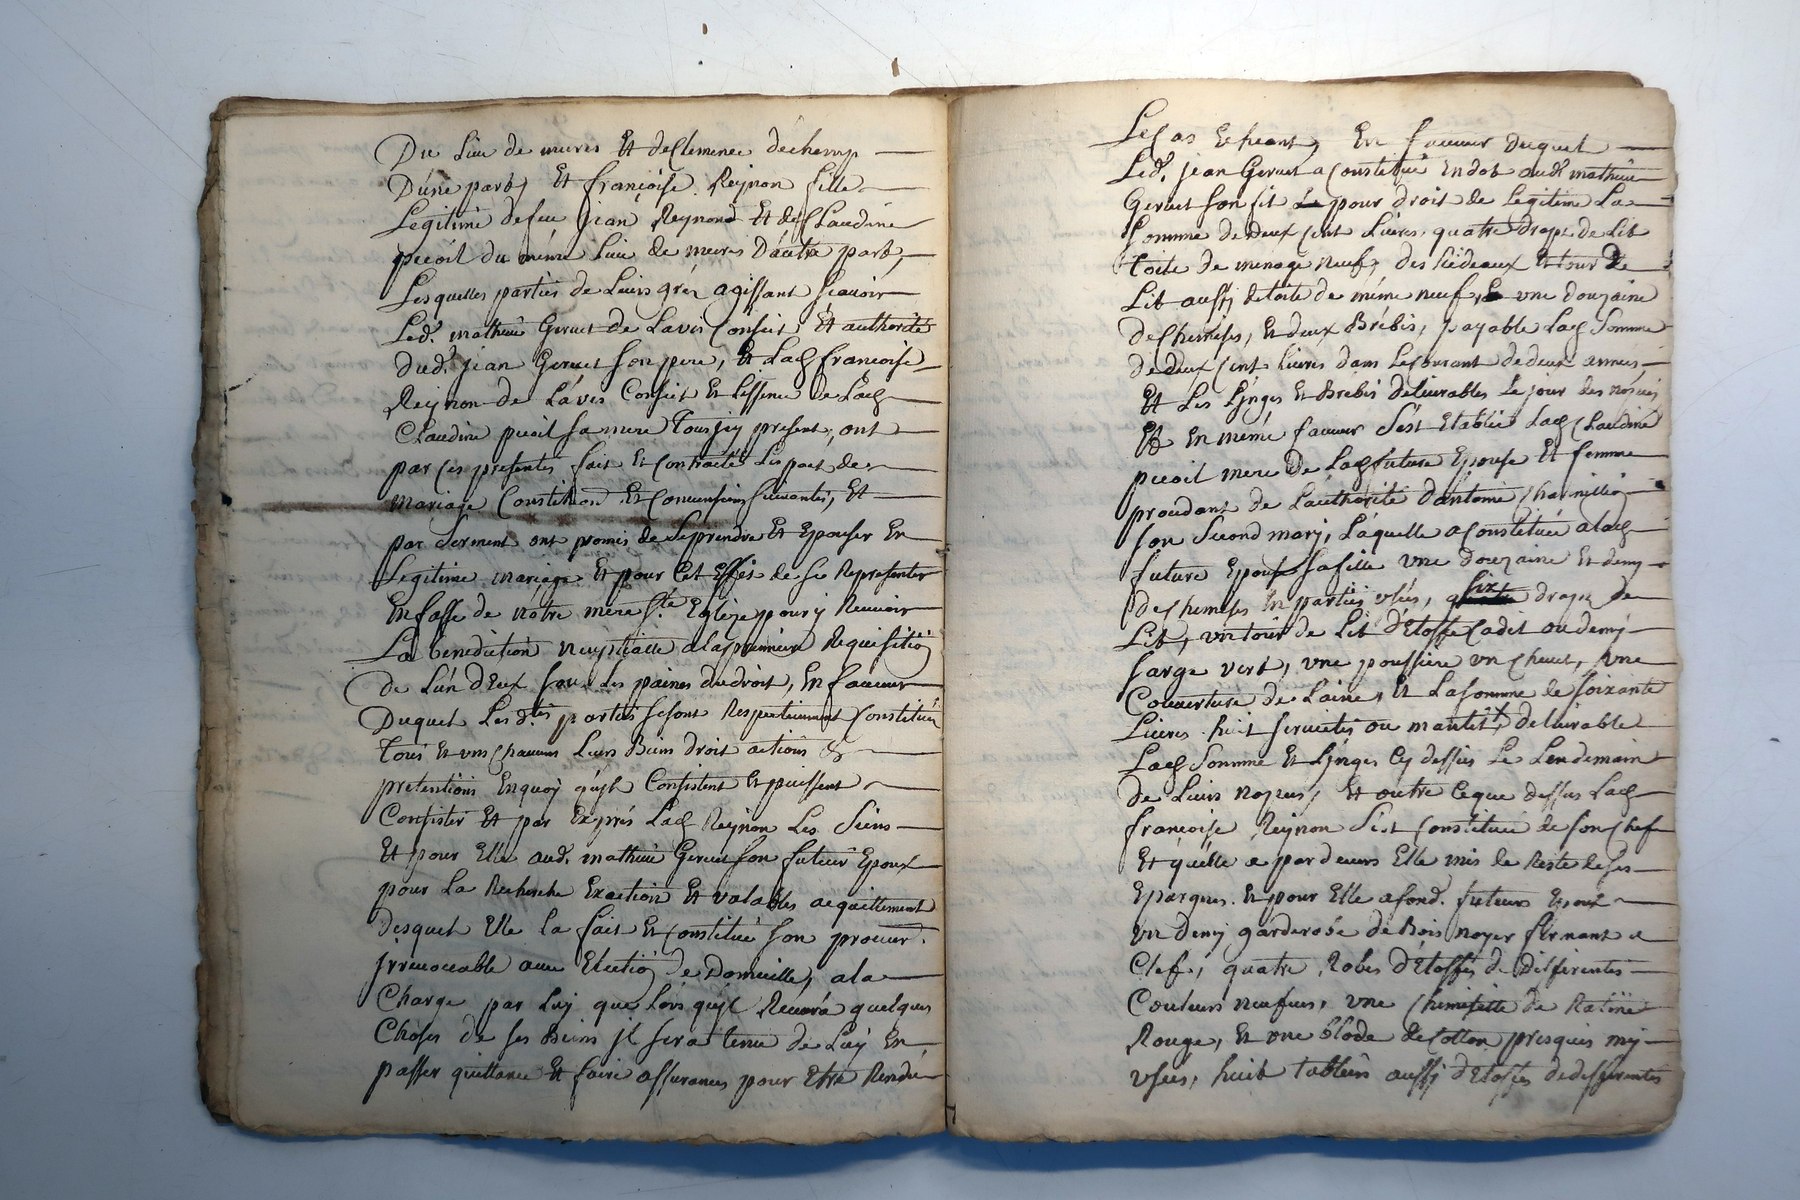 Du Lieu de mures Et de Clemence dechamp
D'une part, Et françoise Reynon fille
Legitime de feu Jean Reynond Et de Claudine
pucoil du même Lieu de mures D'autre part,
Lesquelles parties de Leurs gréz agissant scauoir
Led. mathieu Geruet de Lavis Conseit Et authorité
dud. jean Geruet son pere, Et Lad françoise
Reynon de L'avis Conseit Et Lissence de Lad
Claudine pucoil sa mere Tous jcy present, ont
par Ces presentes fait Et Contracté Les pact de
mariage Constitution Et Conuensions suivantes, Et
par serment ont promis de Se prendre Et Epouser En
Legitime mariage Et pour Cet Effet de se Representer
En fasse de nôtre mere Ste. Eglize pour y Receuoir
La benediction nuptialle a La premiere Requisition
de L'un d'Eux sous Les paines du droit, En faueur
Duquel Les d.tes parties se sont Respectiuement Constitués
Tous Et uns chacuns Leurs Biens droit actions &
pretentions En quoy qu'jl Consistent Et puissent
Consister Et par Exprés Lad Reynon Les Siens
Et pour Elle aud. mathieu Geruet son futeur Epoux
pour La Recherche Exaction Et valables acquittement
desquel Elle La fait Et Constitué son procur.
jrreuocable auec Election de Domicille, a la
Charge par Luy que Lors qu'jl Receura quelques
Choses de ses Biens jl sera tenu de Luy En
passer quittance Et faire assurances pour Etre Rendu
Le Cas Echeant, En faueur duquel
Led. jean Geruet a Constitué En dot aud. mathieu
Geruet son fit pour droit de Legitime La
Somme de deux Cent Liures, quatre draps de Lit
toile de menage neuf, des Rideaux Et tour de
Lit aussy de toile de même neuf, une douzaine
de Chemises, Et deux Brebis, payable Lad Somme
de deux Cent Liures dans Le Courant de deux années
Et Les Linges Et Brebis deliurables Le jour des noces
Et En même faueur S'est Etablie Lad Claudine
pucoil mere de Lad future Epouse Et femme
proudant de L'authorité d'antoine Charmillion
son Second mary, Laquelle a Constituée a lad
future Epouse sa fille une douzaine Et demy
de chemises En parties usées, six draps de
Lit, un tour de Lit d'Etoffe Cadit ou demy
sarge vert, une poussiere un Cheuet, une
Couuerture de Laine, Et La Somme de soixante
Liures huit seruietes ou mantit, deliurable
Lad Somme Et Linges Cy dessus Le Lendemain
de Leurs nopces, Et outre Ce que dessus Lad
françoise Reynon S'est Constituée de son Chef
Et qu'elle a par deuers Elle mis de Reste de ses
Epargnes. Et pour Elle a sond. futeurs Epoux
un demy garderobe de Bois noyer fermant a
Clef, quatre Robes d'Etoffes de differentes
Couleurs neufues, une Chemisette de Ratine
Rouge, Et une blode de Cotton presques my
usées, huit tabliers aussy d'Etoffes de differentes